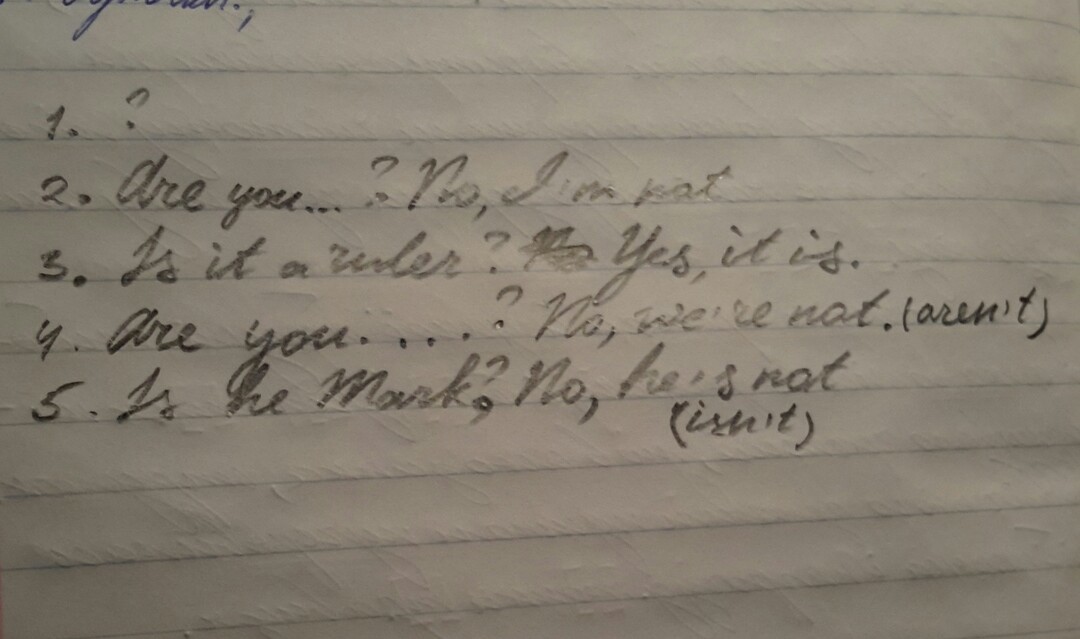 1. ?
2. Are you...? No, I'm not
3. Is it a ruler? Yes, it is.
4. Are you.....? No, we're not. (aren't)
5. Is he Mark? No, he's not
(isn't)